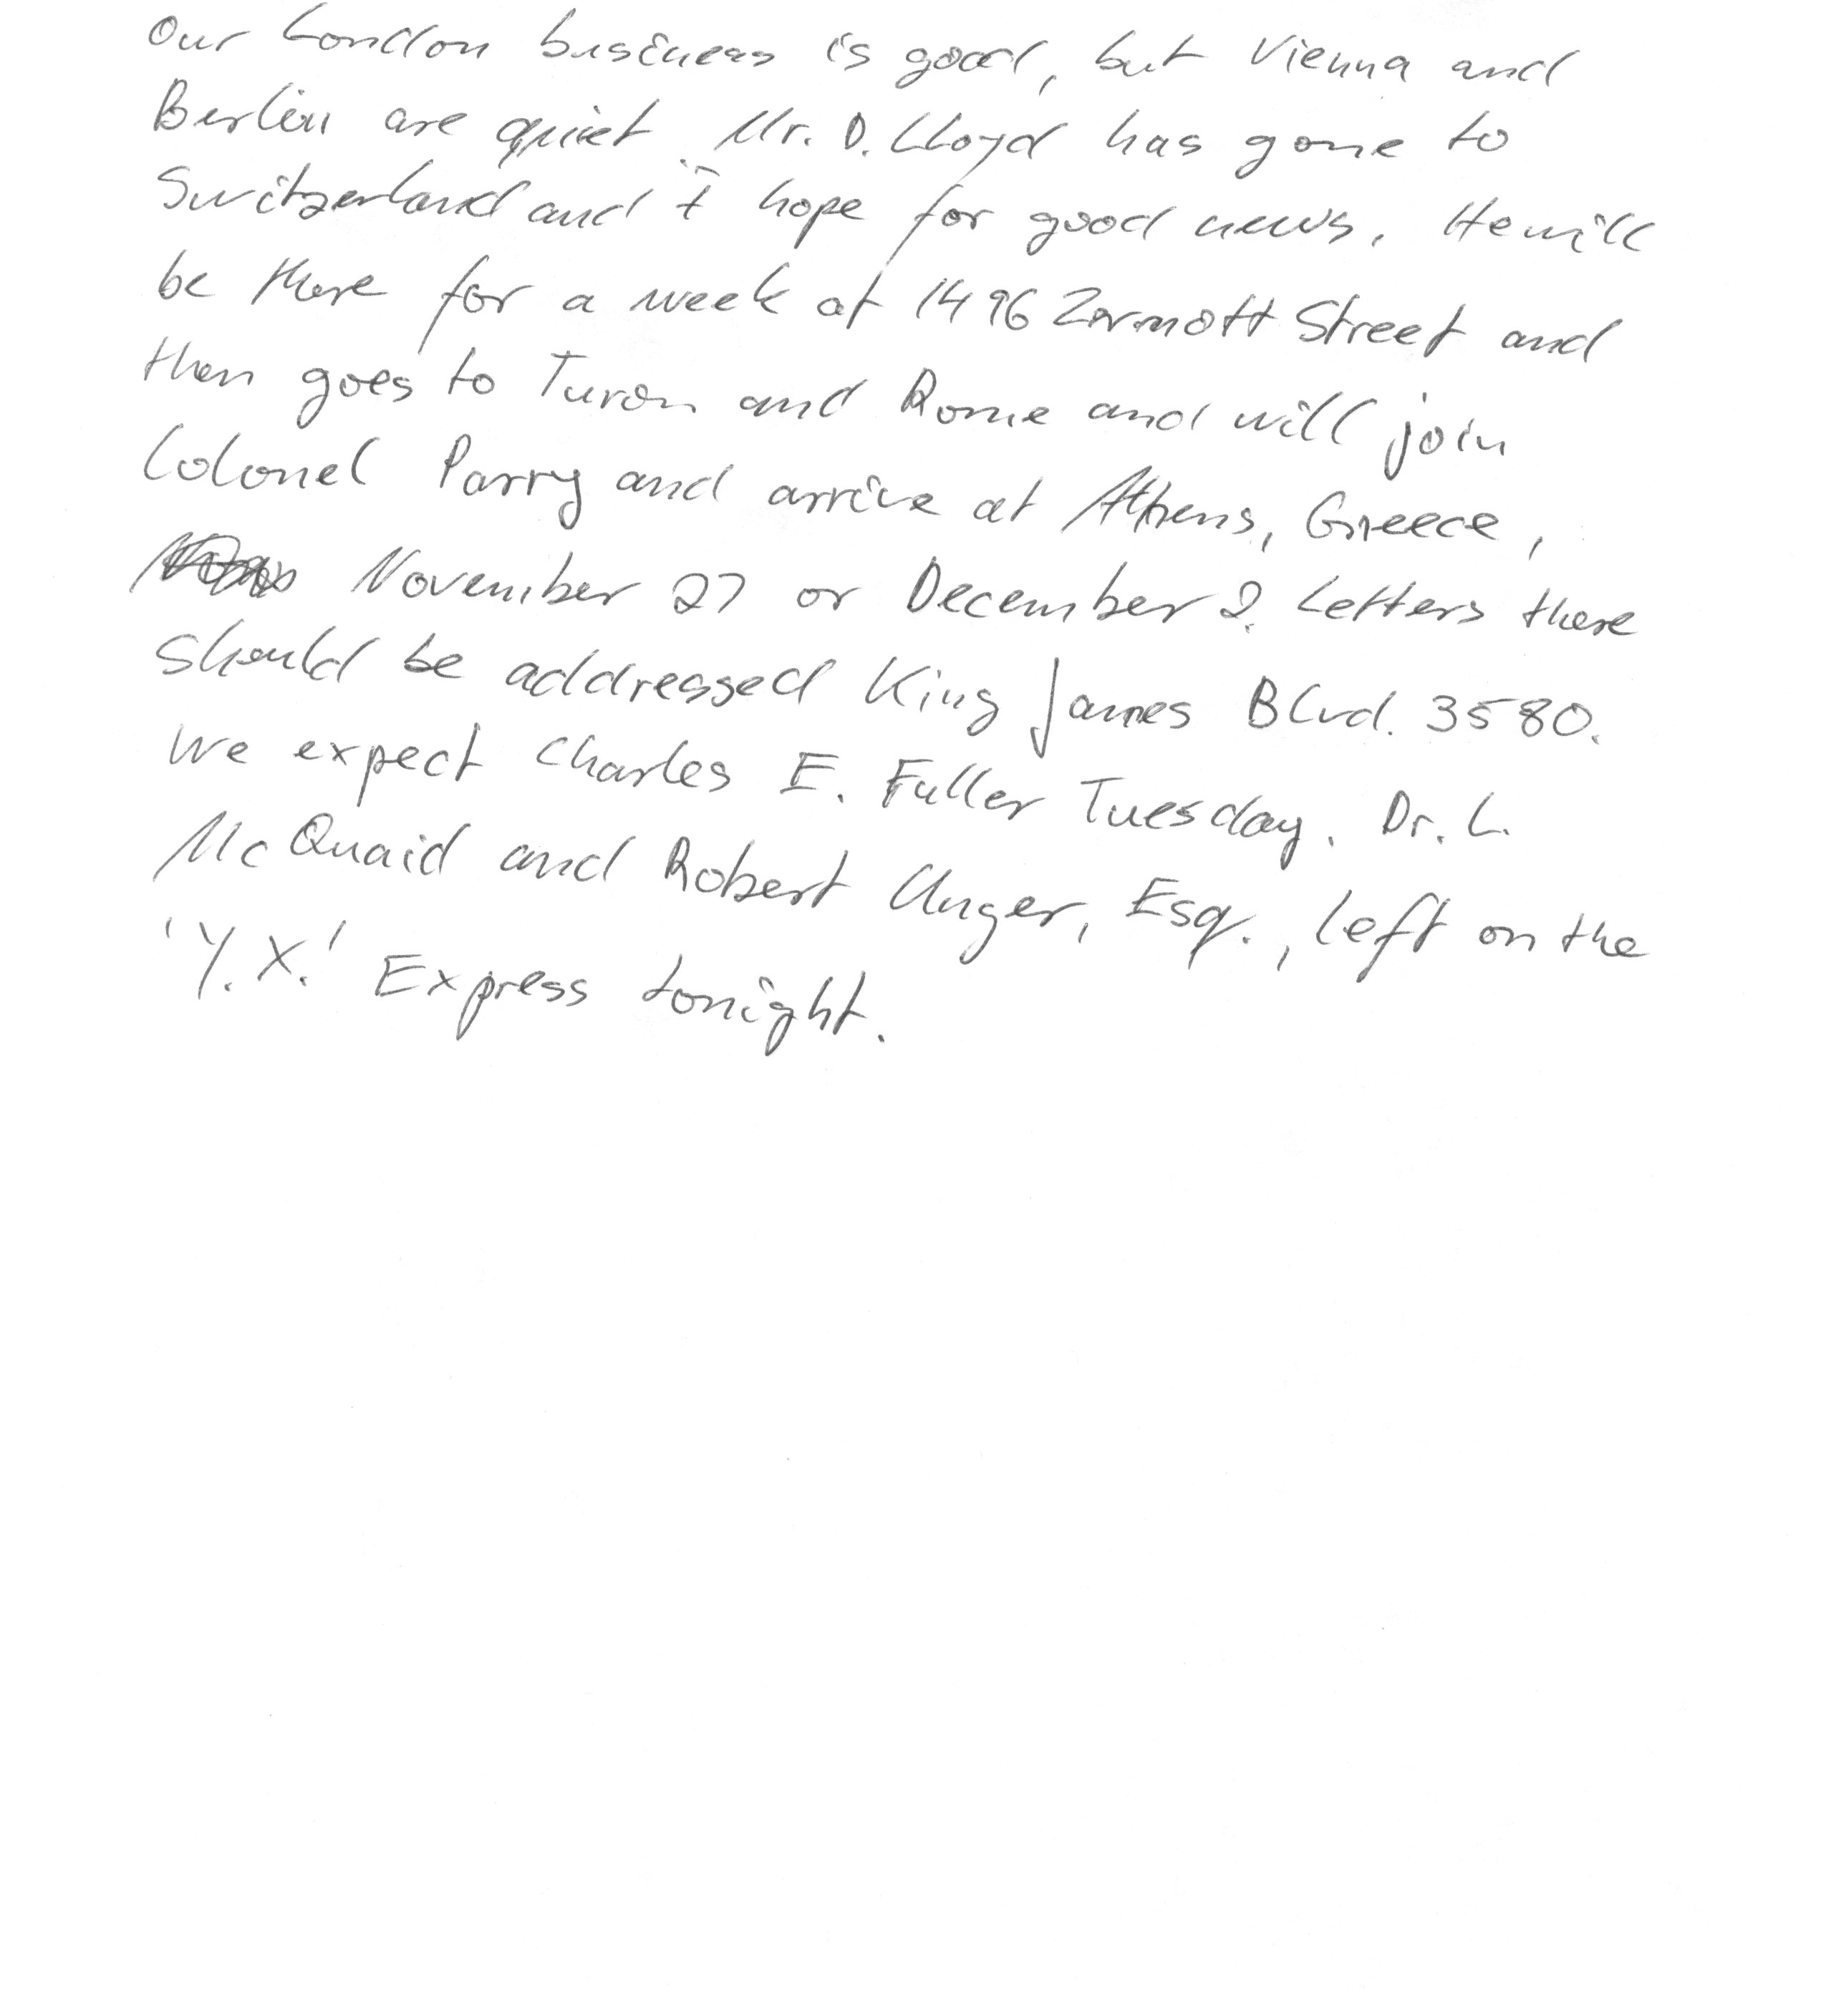 Our London business is good, but Vienna and
Berlin are quiet. Mr. D. Lloyd has gone to
Switzerland and I hope for good news. He will
be there for a week at 1496 Zermott Street and
then goes to Turon and Rome and will join
Colonel Parry and arrive at Athens, Greece,
November 27 or December 2. Letters there
should be addressed King James Blvd. 3580.
We expect Charles E. Fuller Tuesday. Dr. L.
McQuaid and Robert Unger, Esq., left on the
'Y.X.' Express tonight.